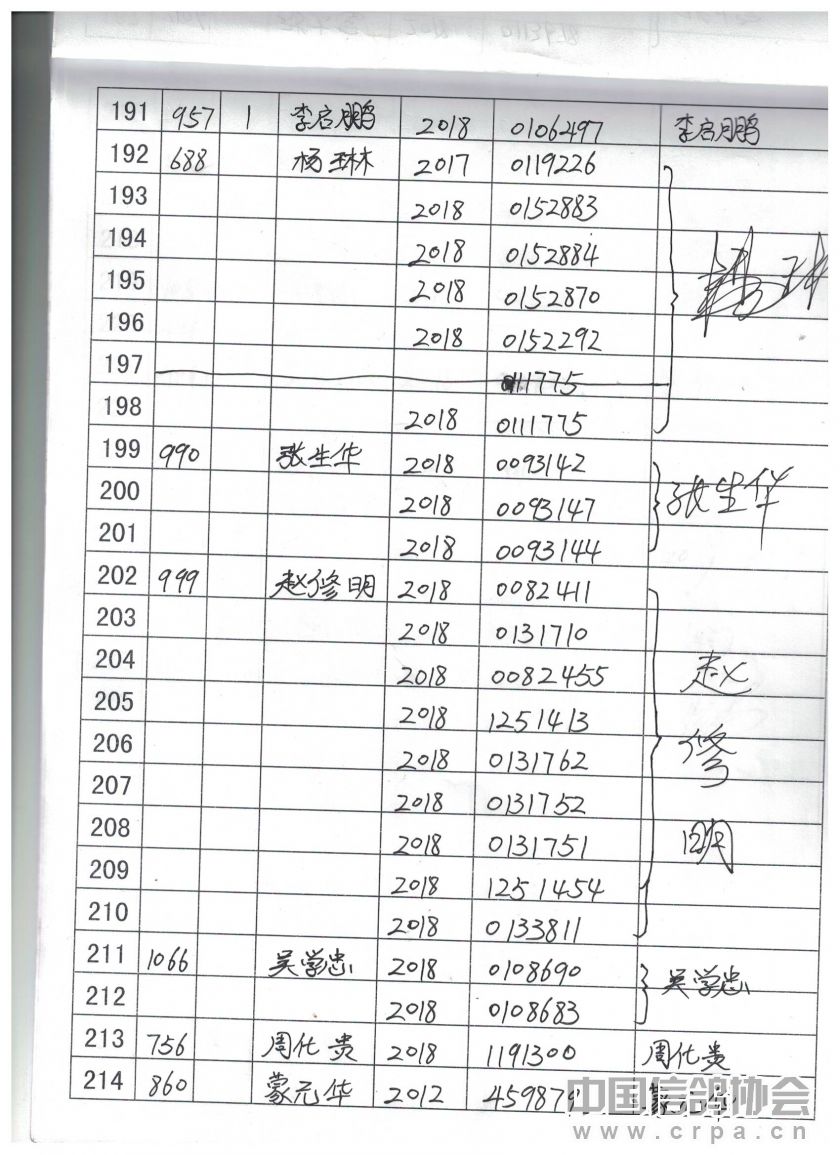 191 957 1 李启鹏 2018 0106497 李启鹏
192 688 杨琳 2017 0119226
193 2018 0152883
194 2018 0152884
195 2018 0152870
196 2018 0152292
197 0111775
198 2018 0111775
199 990 张生华 2018 0093142 张生华
200 2018 0093147
201 2018 0093144
202 999 赵修明 2018 0082411
203 2018 0131710
204 2018 0082455 赵
205 2018 1251413
206 2018 0131762 修
207 2018 0131752
208 2018 0131751 明
209 2018 1251454
210 2018 0133811
211 1066 吴学忠 2018 0108690 吴学忠
212 2018 0108683
213 756 周代贵 2018 1191300 周代贵
214 860 蒙元华 2012 459879
中国信鸽协会
www.crpa.cn